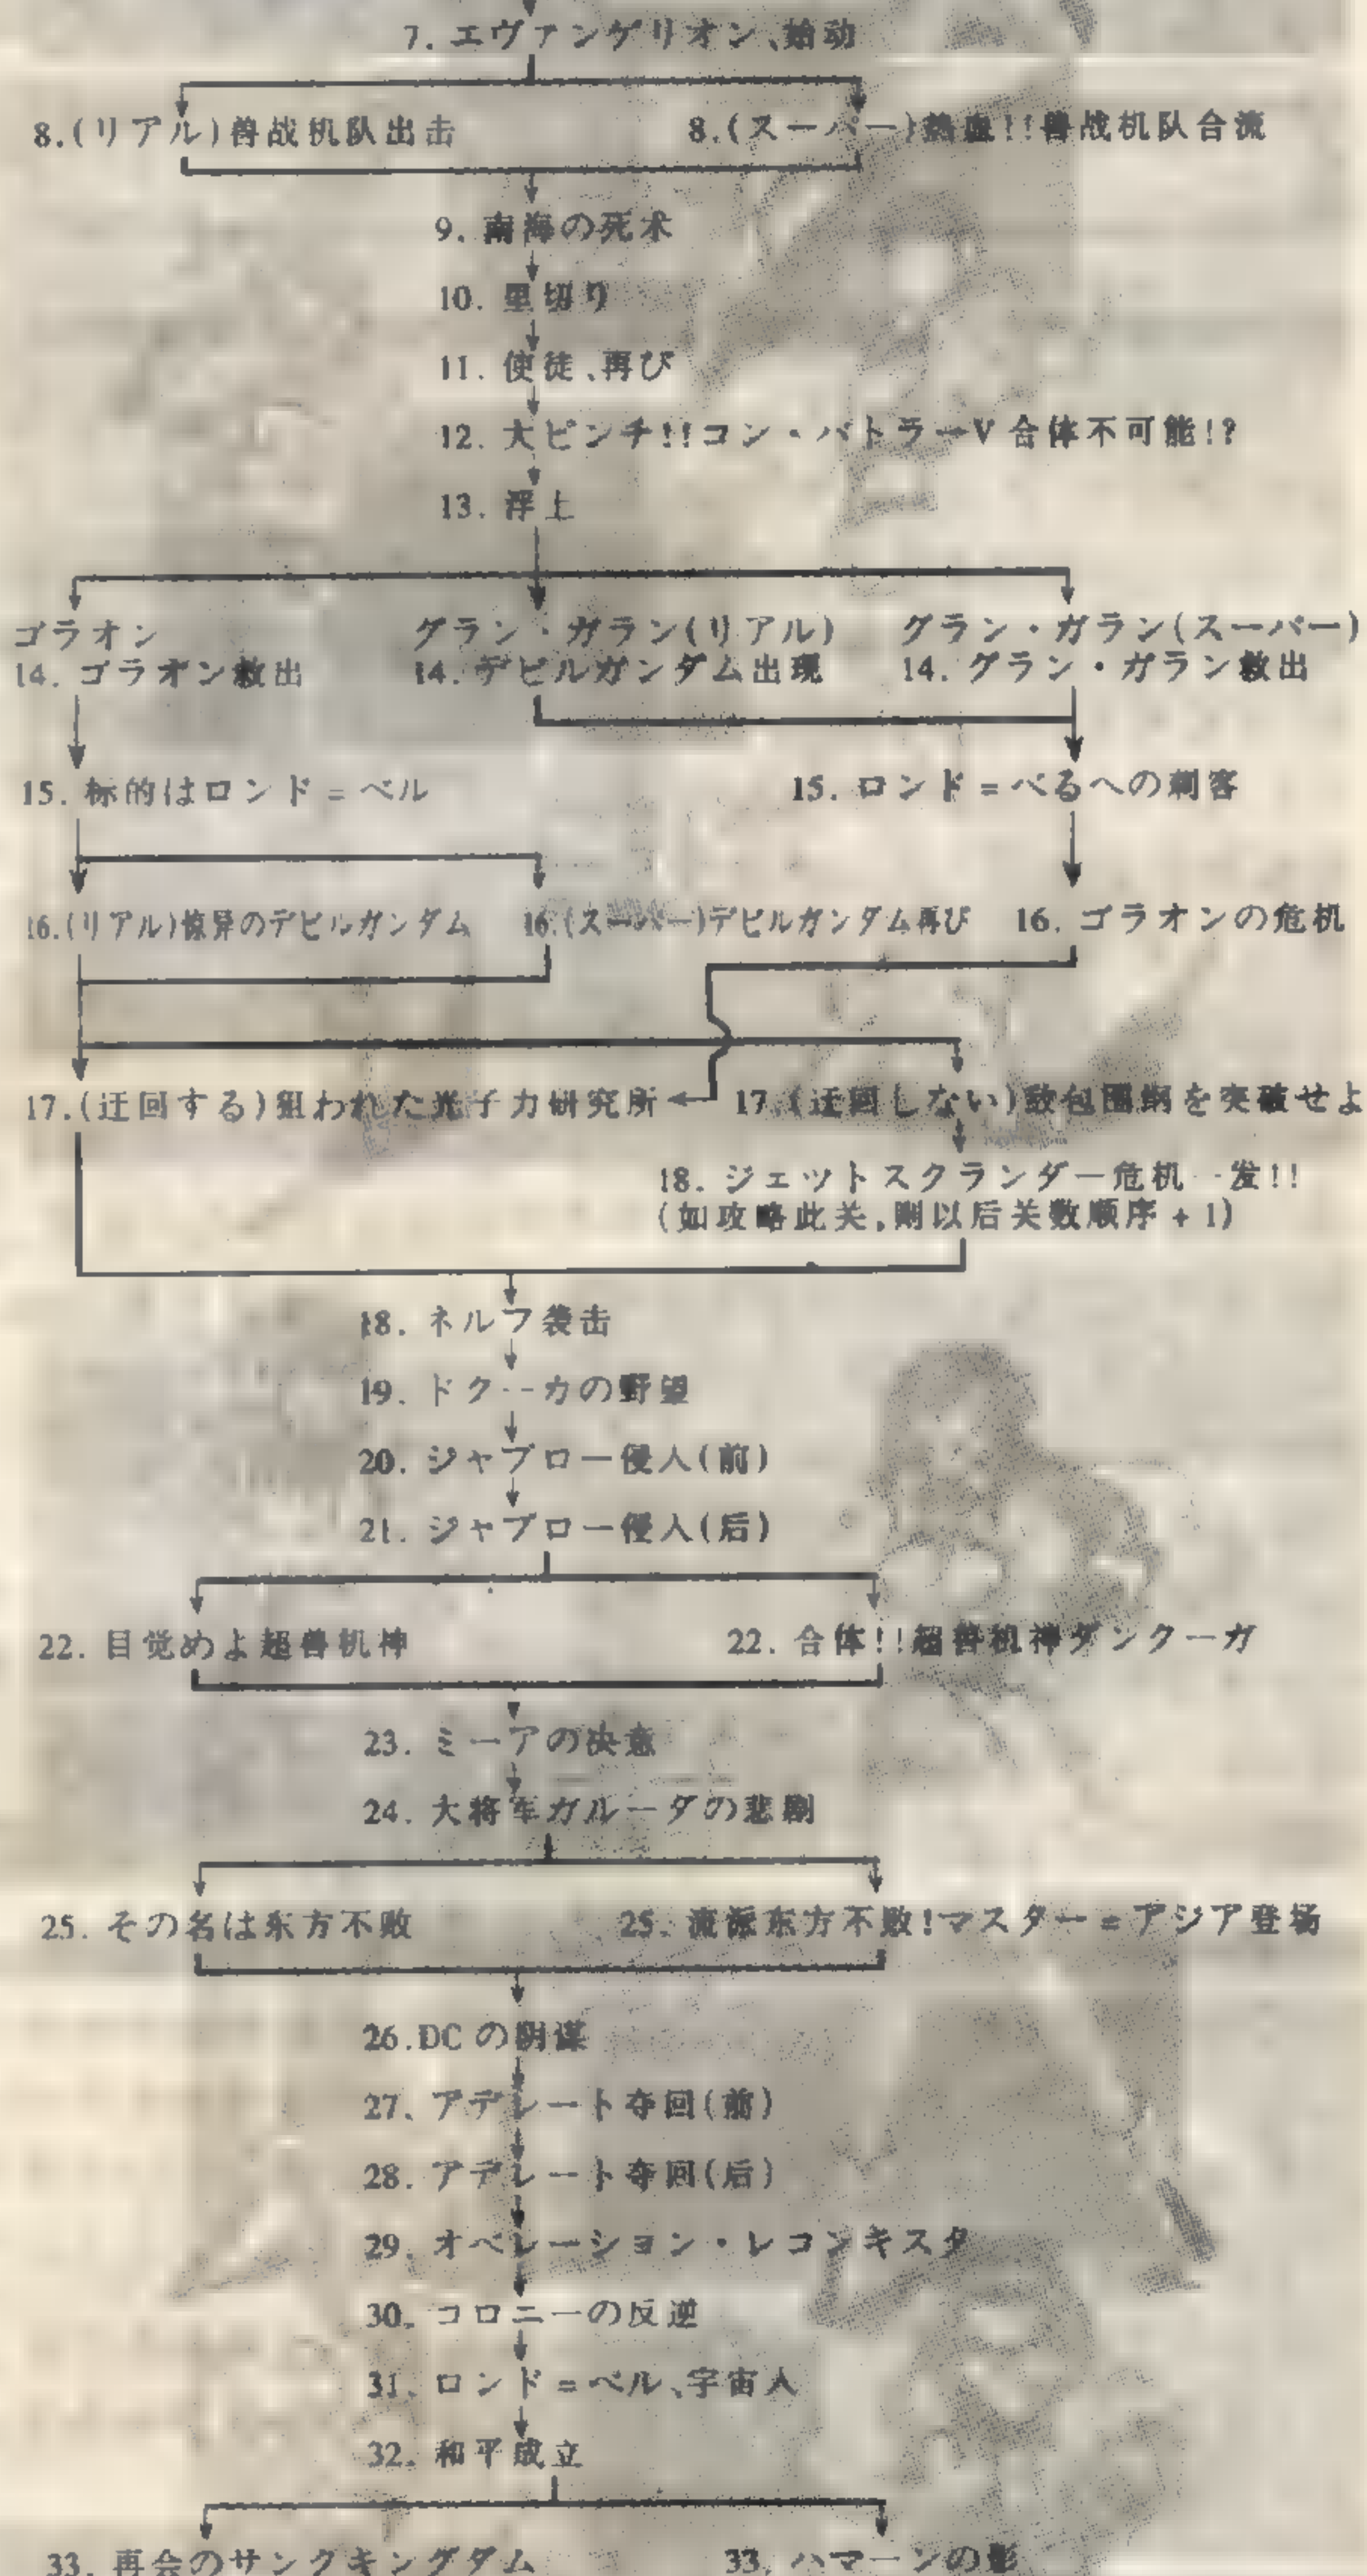 7. エヴァンゲリオン、始动
8.(リアル)兽战机队出击
8.(スーパー)热血!!兽战机队合流
9. 南海の死术
10. 里切り
11. 使徒、再び
12. 大ピンチ!!コン・バトラーV 合体不可能!?
13. 浮上
ゴラオン
14. ゴラオン救出
グラン・ガラン(リアル)
14. デビルガンダム出现
グラン・ガラン(スーパー)
14. グラン・ガラン救出
15. 标的はロンド=ベル
15. ロンド=べるへの刺客
16.(リアル)惊异のデビルガンダム
16.(スーパー)デビルガンダム再び
16. ゴラオンの危机
17.(迂回する)狙われた光子力研究所
17.(迂回しない)敌包围纲を突破せよ
18. ジェットスクランダー危机一发!!
(如攻略此关,则以后关数顺序+1)
18. ネルフ袭击
19. ドクーカの野望
20. ジャブロー侵人(前)
21. ジャブロー侵人(后)
22. 目觉めよ超兽机神
22. 合体!!超兽机神ダンクーガ
23. ミーアの决意
24. 大将军ガルーダの悲剧
25. その名は东方不败
25. 流派东方不败!マスター=アジア登场
26.DCの阴谋
27. アデレート夺回(前)
28. アデレート夺回(后)
29. オペレーション・レコンキスタ
30. コロニーの反逆
31. ロンド=ベル、宇宙人
32. 和平成立
33. 再会のサンクキングダム
33. ハマーンの影